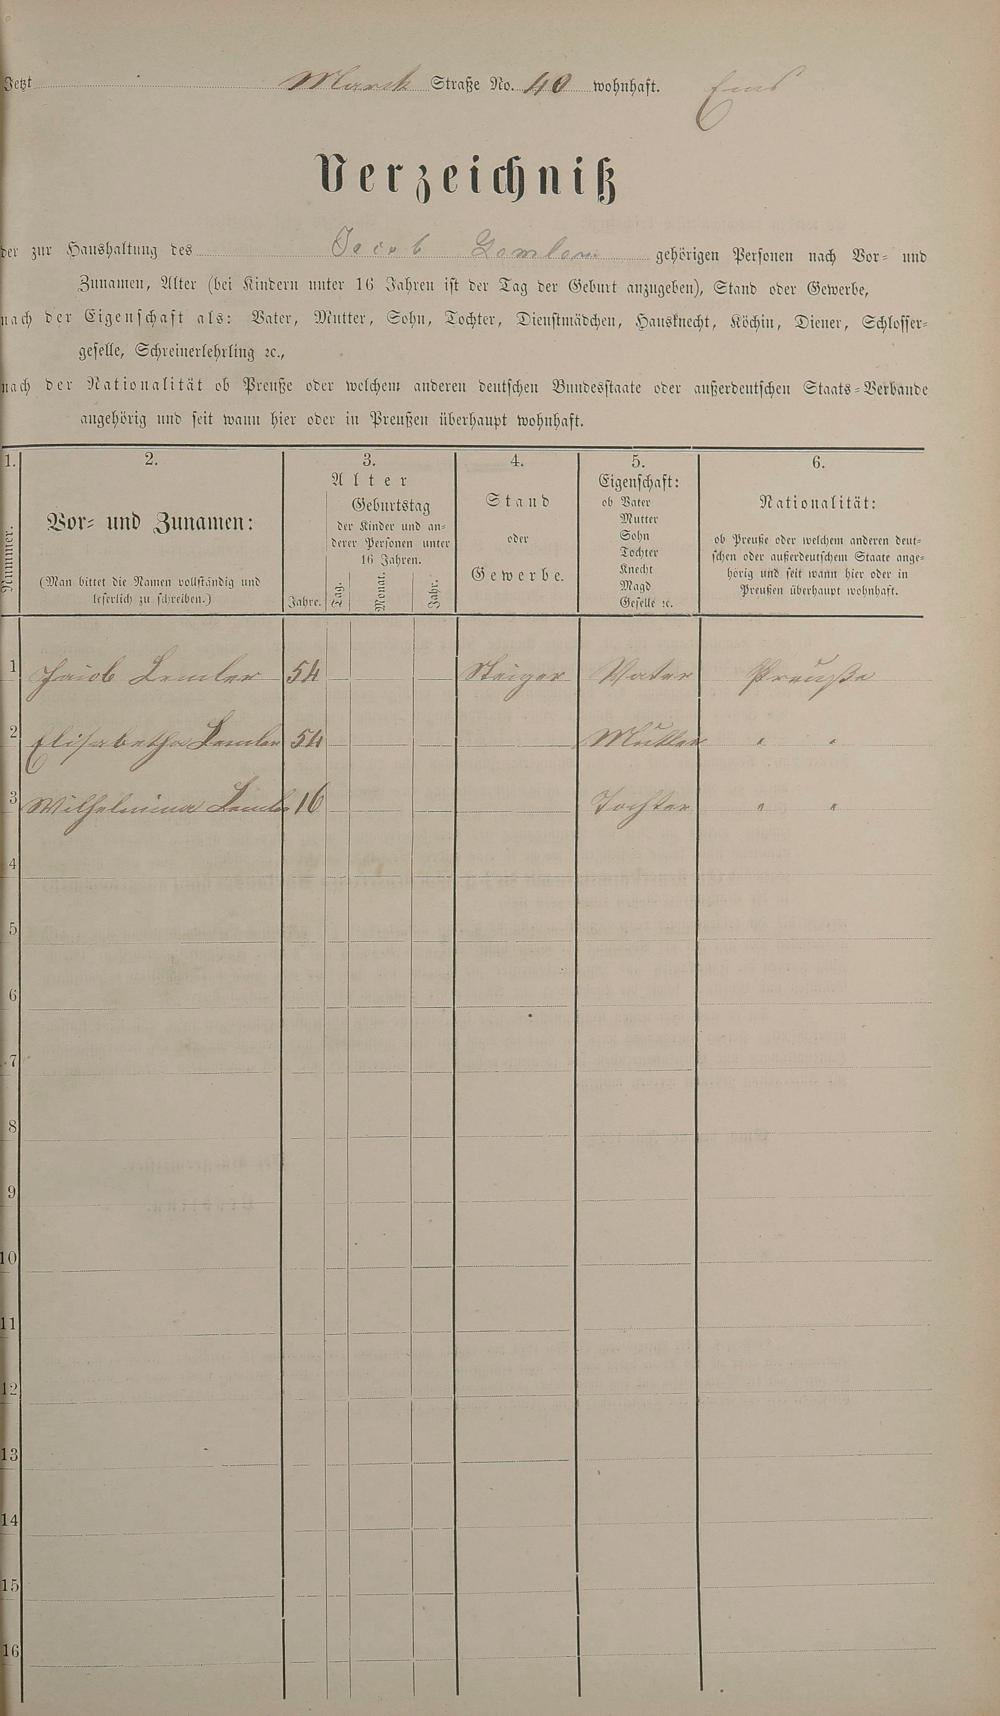 Jetzt Marck Straße No. 40 wohnhaft. Ems
Verzeichniß
der zur Haushaltung des Jacob Lemler gehörigen Personen nach Vor- und
Zunamen, Alter (bei Kindern unter 16 Jahren ist der Tag der Geburt anzugeben), Stand oder Gewerbe,
nach der Eigenschaft als: Vater, Mutter, Sohn, Tochter, Dienstmädchen, Hausknecht, Köchin, Diener, Schlosser-
geselle, Schreinerlehrling ꝛc.,
nach der Nationalität ob Preuße oder welchem anderen deutschen Bundesstaate oder außerdeutschen Staats-Verbande
angehörig und seit wann hier oder in Preußen überhaupt wohnhaft.
1.
Nummer.
2.
Vor- und Zunamen:
(Man bittet die Namen vollständig und
leserlich zu schreiben.)
3.
Alter
Geburtstag
der Kinder und an-
derer Personen unter
16 Jahren.
Jahre. Tag. Monat. Jahr.
4.
Stand
oder
Gewerbe.
5.
Eigenschaft:
ob Vater
Mutter
Sohn
Tochter
Knecht
Magd
Geselle ꝛc.
6.
Nationalität:
ob Preuße oder welchem anderen deut-
schen oder außerdeutschem Staate ange-
hörig und seit wann hier oder in
Preußen überhaupt wohnhaft.
1 Jacob Lemler 54 Steiger Vater Preuße
2 Elisabetha Lemler 54 Mutter " "
3 Wilhelmina Lemler 16 Tochter " "
4
5
6
7
8
9
10
11
12
13
14
15
16